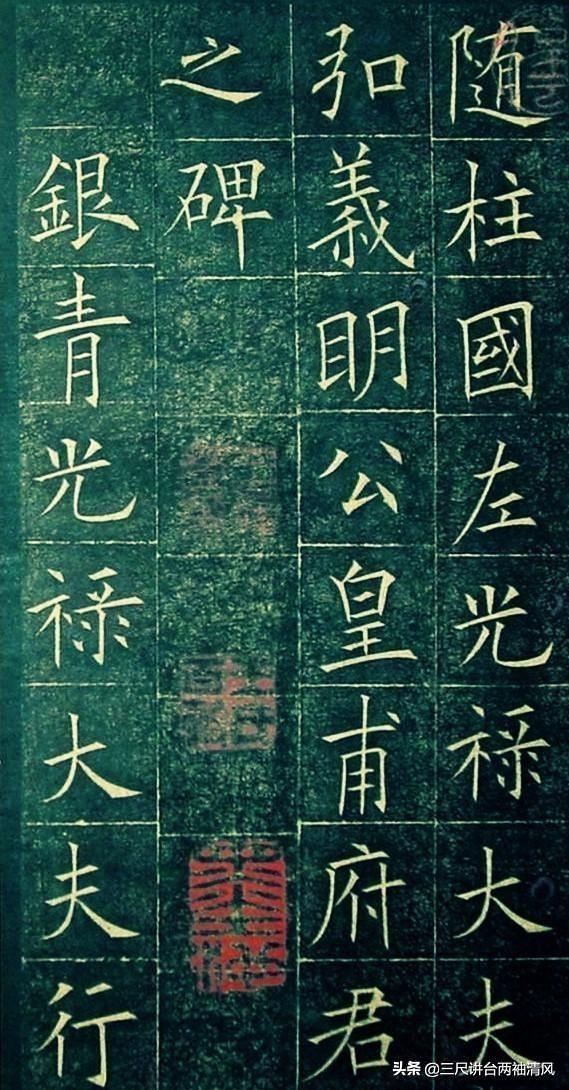 随柱國左光祿大夫
弘義明公皇甫府君
之碑
銀青光祿大夫行
头条 @三尺讲台两袖清风